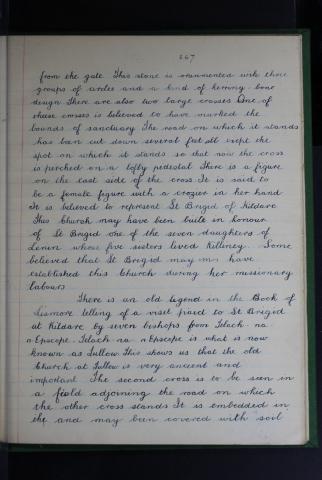 667
from the gate. This stone is ornamented with three
groups of circles and a kind of herring-bone
design There are also two large crosses One of
these crosses is believed to have marked the
bounds of sanctuary The road on which it stands
has been cut down several feet all except the
spot on which it stands so that now the cross
is perched on a lofty pedestal There is a figure
on the east side of the cross. It is said to
be a female figure with a crozier in her hand
It is believed to represent St Brigid of Kildare
This Church may have been built in honour
of St Brigid one of the seven daughters of
Lenin whose five sisters lived Killiney. Some
believed that St Brigid may have
established this Church during her missionary
labours
There is an old legend in the Book of
Lismore telling of a visit paid to St Brigid
at Kildare by seven bishops from Telach na
n Epscope. Telach na n Epscope is what is now
known as Tullow. This shows us that the old
Church at Tullow is very ancient and
important The second cross is to be seen in
a field adjoining the road on which
the other cross stands It is embedded in
the and may been covered with soil